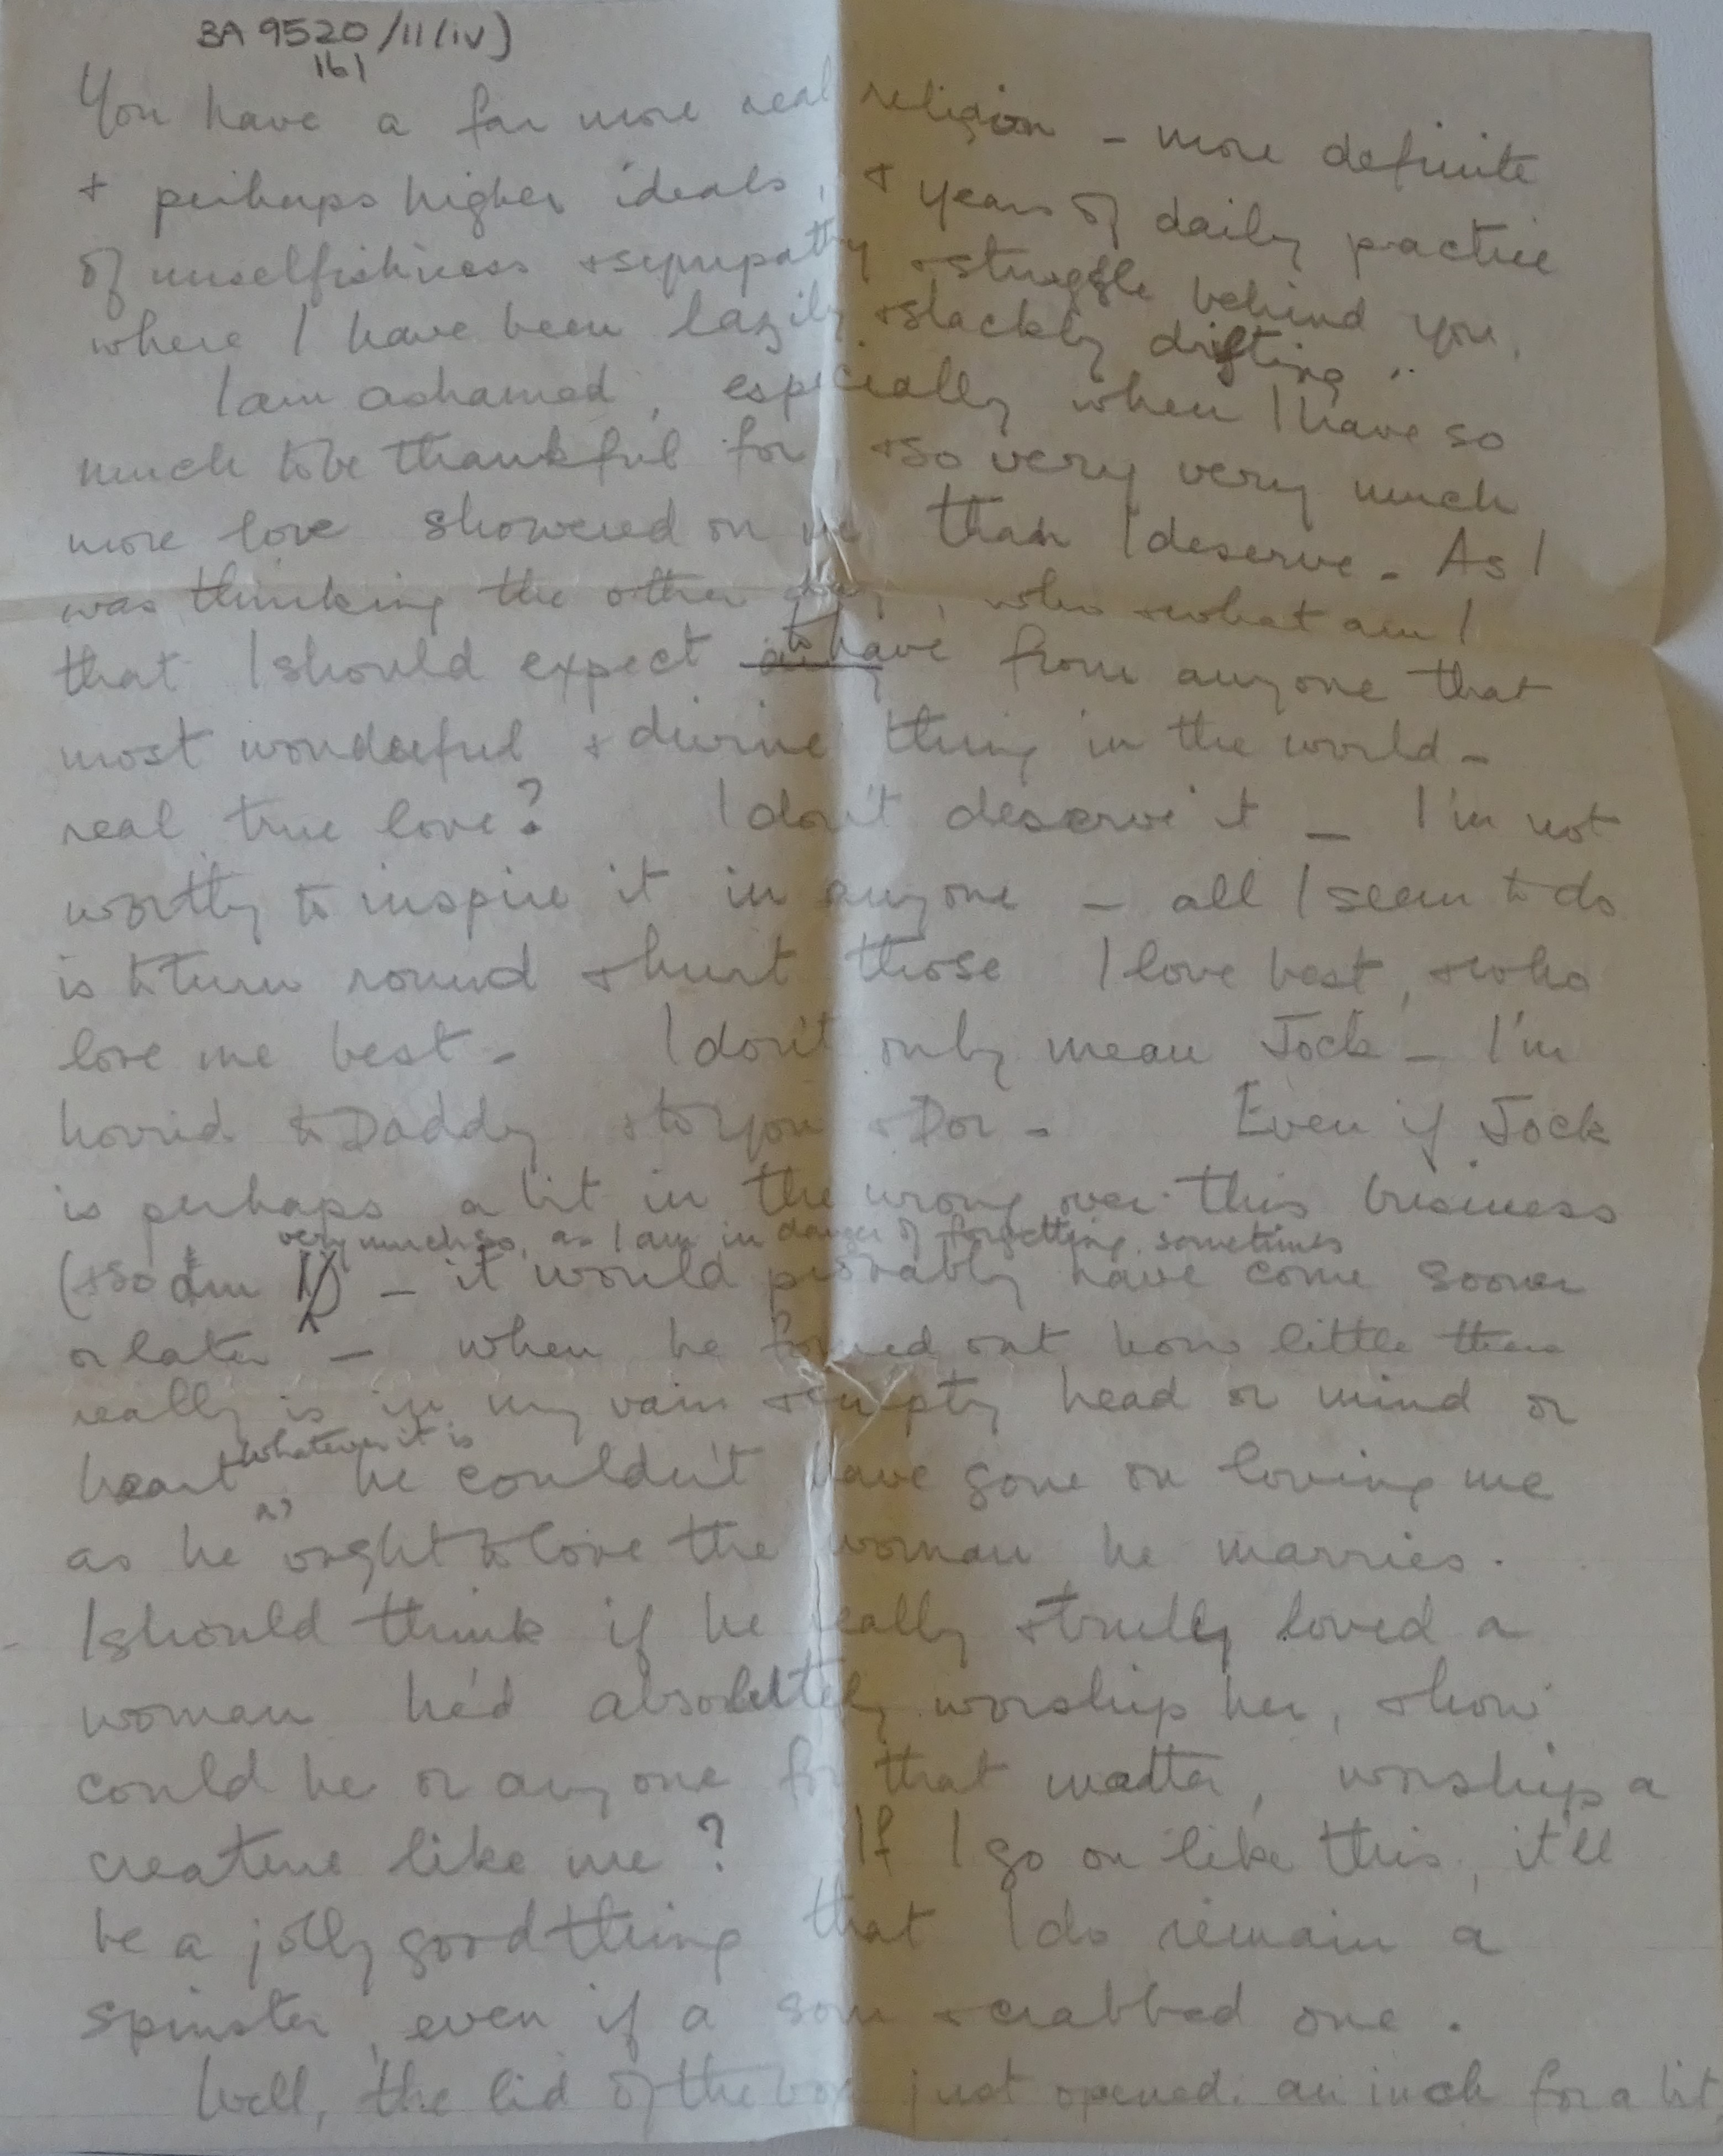 BA 9520/11(iv)
161
You have a far more real religion - more definite
+ perhaps higher ideals, + years of daily practice
of unselfishness + sympathy + struggle behind you,
where I have been lazily + slackly drifting.
I am ashamed, especially when I have so
much to be thankful for, + so very very much
more love showered on me than I deserve - As I
was thinking the other day, who + what am I
that I should expect to have from anyone that
most wonderful + divine thing in the world -
real true love? I don't deserve it - I'm not
worthy to inspire it in anyone - all I seem to do
is to turn round + hurt those I love best, + who
love me best - I don't only mean Jock - I'm
horrid to Daddy + to you + Dor - Even if Jock
is perhaps a bit in the wrong over this business
very much so, as I am in danger of forgetting, sometimes
(+ so am I) - it would probably have come sooner
or later - when he found out how little there
really is in my vain + empty head or mind or
whatever it is
heart, he couldn't have gone on loving me
as he ought to love the woman he marries.
I should think if he really + truly loved a
woman he'd absolutely worship her, + how
could he or anyone for that matter, worship a
creature like me? If I go on like this, it'll
be a jolly good thing that I do remain a
spinster, even if a sour + crabbed one.
Well, the lid of the box just opened an inch for a bit,